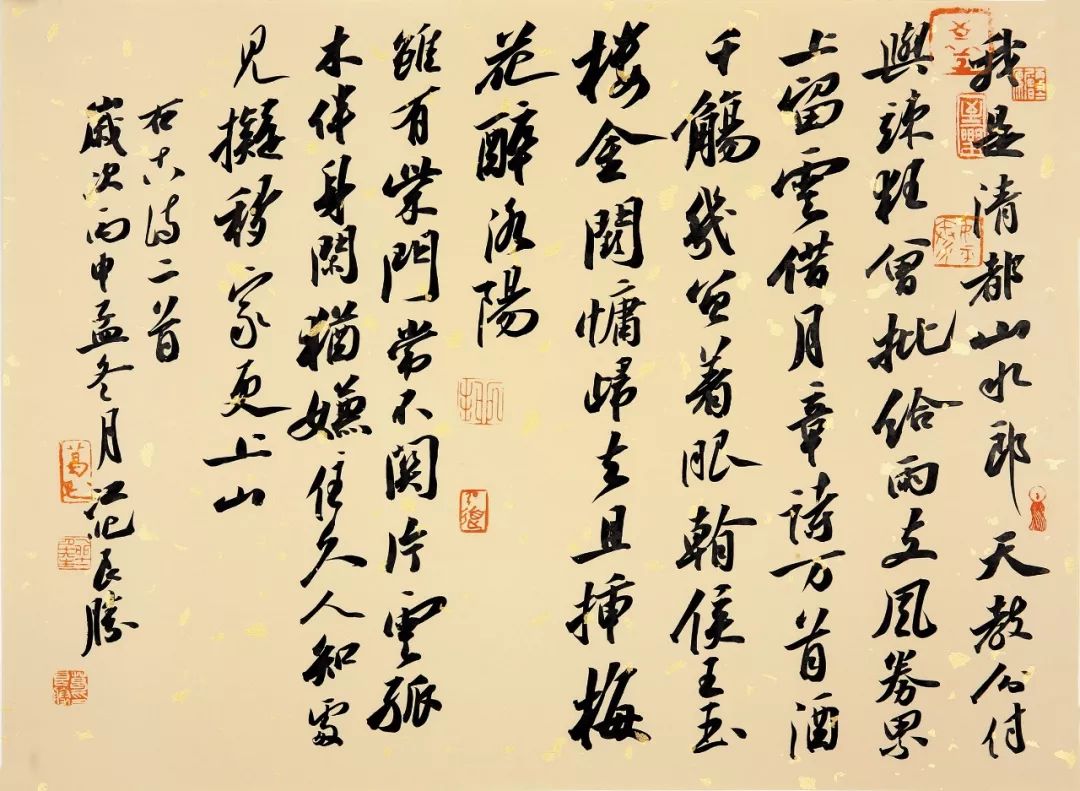 我是清都山水郎天教分付
與踈狂曾批給雨支風券累
上留雲借月章詩万首酒
千觴幾曾着眼翰侯王玉
樓金闕慵歸去且插梅
花醉洛陽
雖有柴門常不關片雲孤
木伴身閑猶嫌住久人知處
見擬移家更上山
右古詩二首
歲次丙申孟冬月良勝